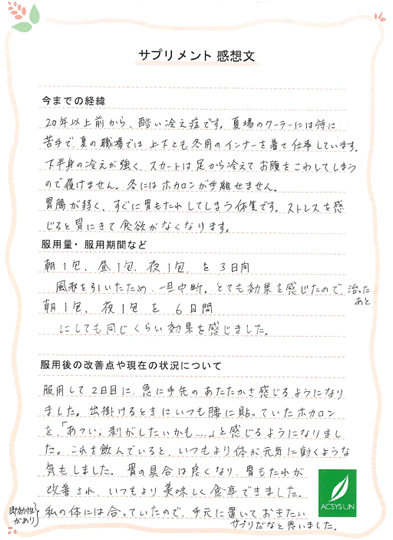 サプリメント 感想文
今までの経緯
20年以上前から、酷い冷え症です。夏場のクーラーには特に
苦手で、夏の職場では上下とも冬用のインナーを着て仕事しています。
下半身の冷えが強く、スカートは足から冷えてお腹をこわしてしまう
ので履けません。冬にはホカロンが手離せません。
胃腸が弱く、すぐに胃もたれしてしまう体質です。ストレスを感
じると胃にきて食欲がなくなります。
服用量・服用期間など
朝1包、昼1包、夜1包 を 3日間
風邪を引いたため、一旦中断。とても効果を感じたので、治った
あと
朝1包、夜1包 を 6日間
にしても同じくらい効果を感じました。
服用後の改善点や現在の状況について
服用して2日目に、急に手先のあたたかさを感じるようになり
ました。出掛けるときにいつも腰に貼っていたホカロン
を、「あつい。剥がしたいかも……」と感じるようになりまし
た。これを飲んでいると、いつもより体が元気に動くような
気もしました。胃の具合は良くなり、胃もたれが
改善され、いつもより美味しく食事できました。
即効性
があり
私の体には合っていたので、手元に置いておきたい
サプリだなと思いました。
ACSYSUN